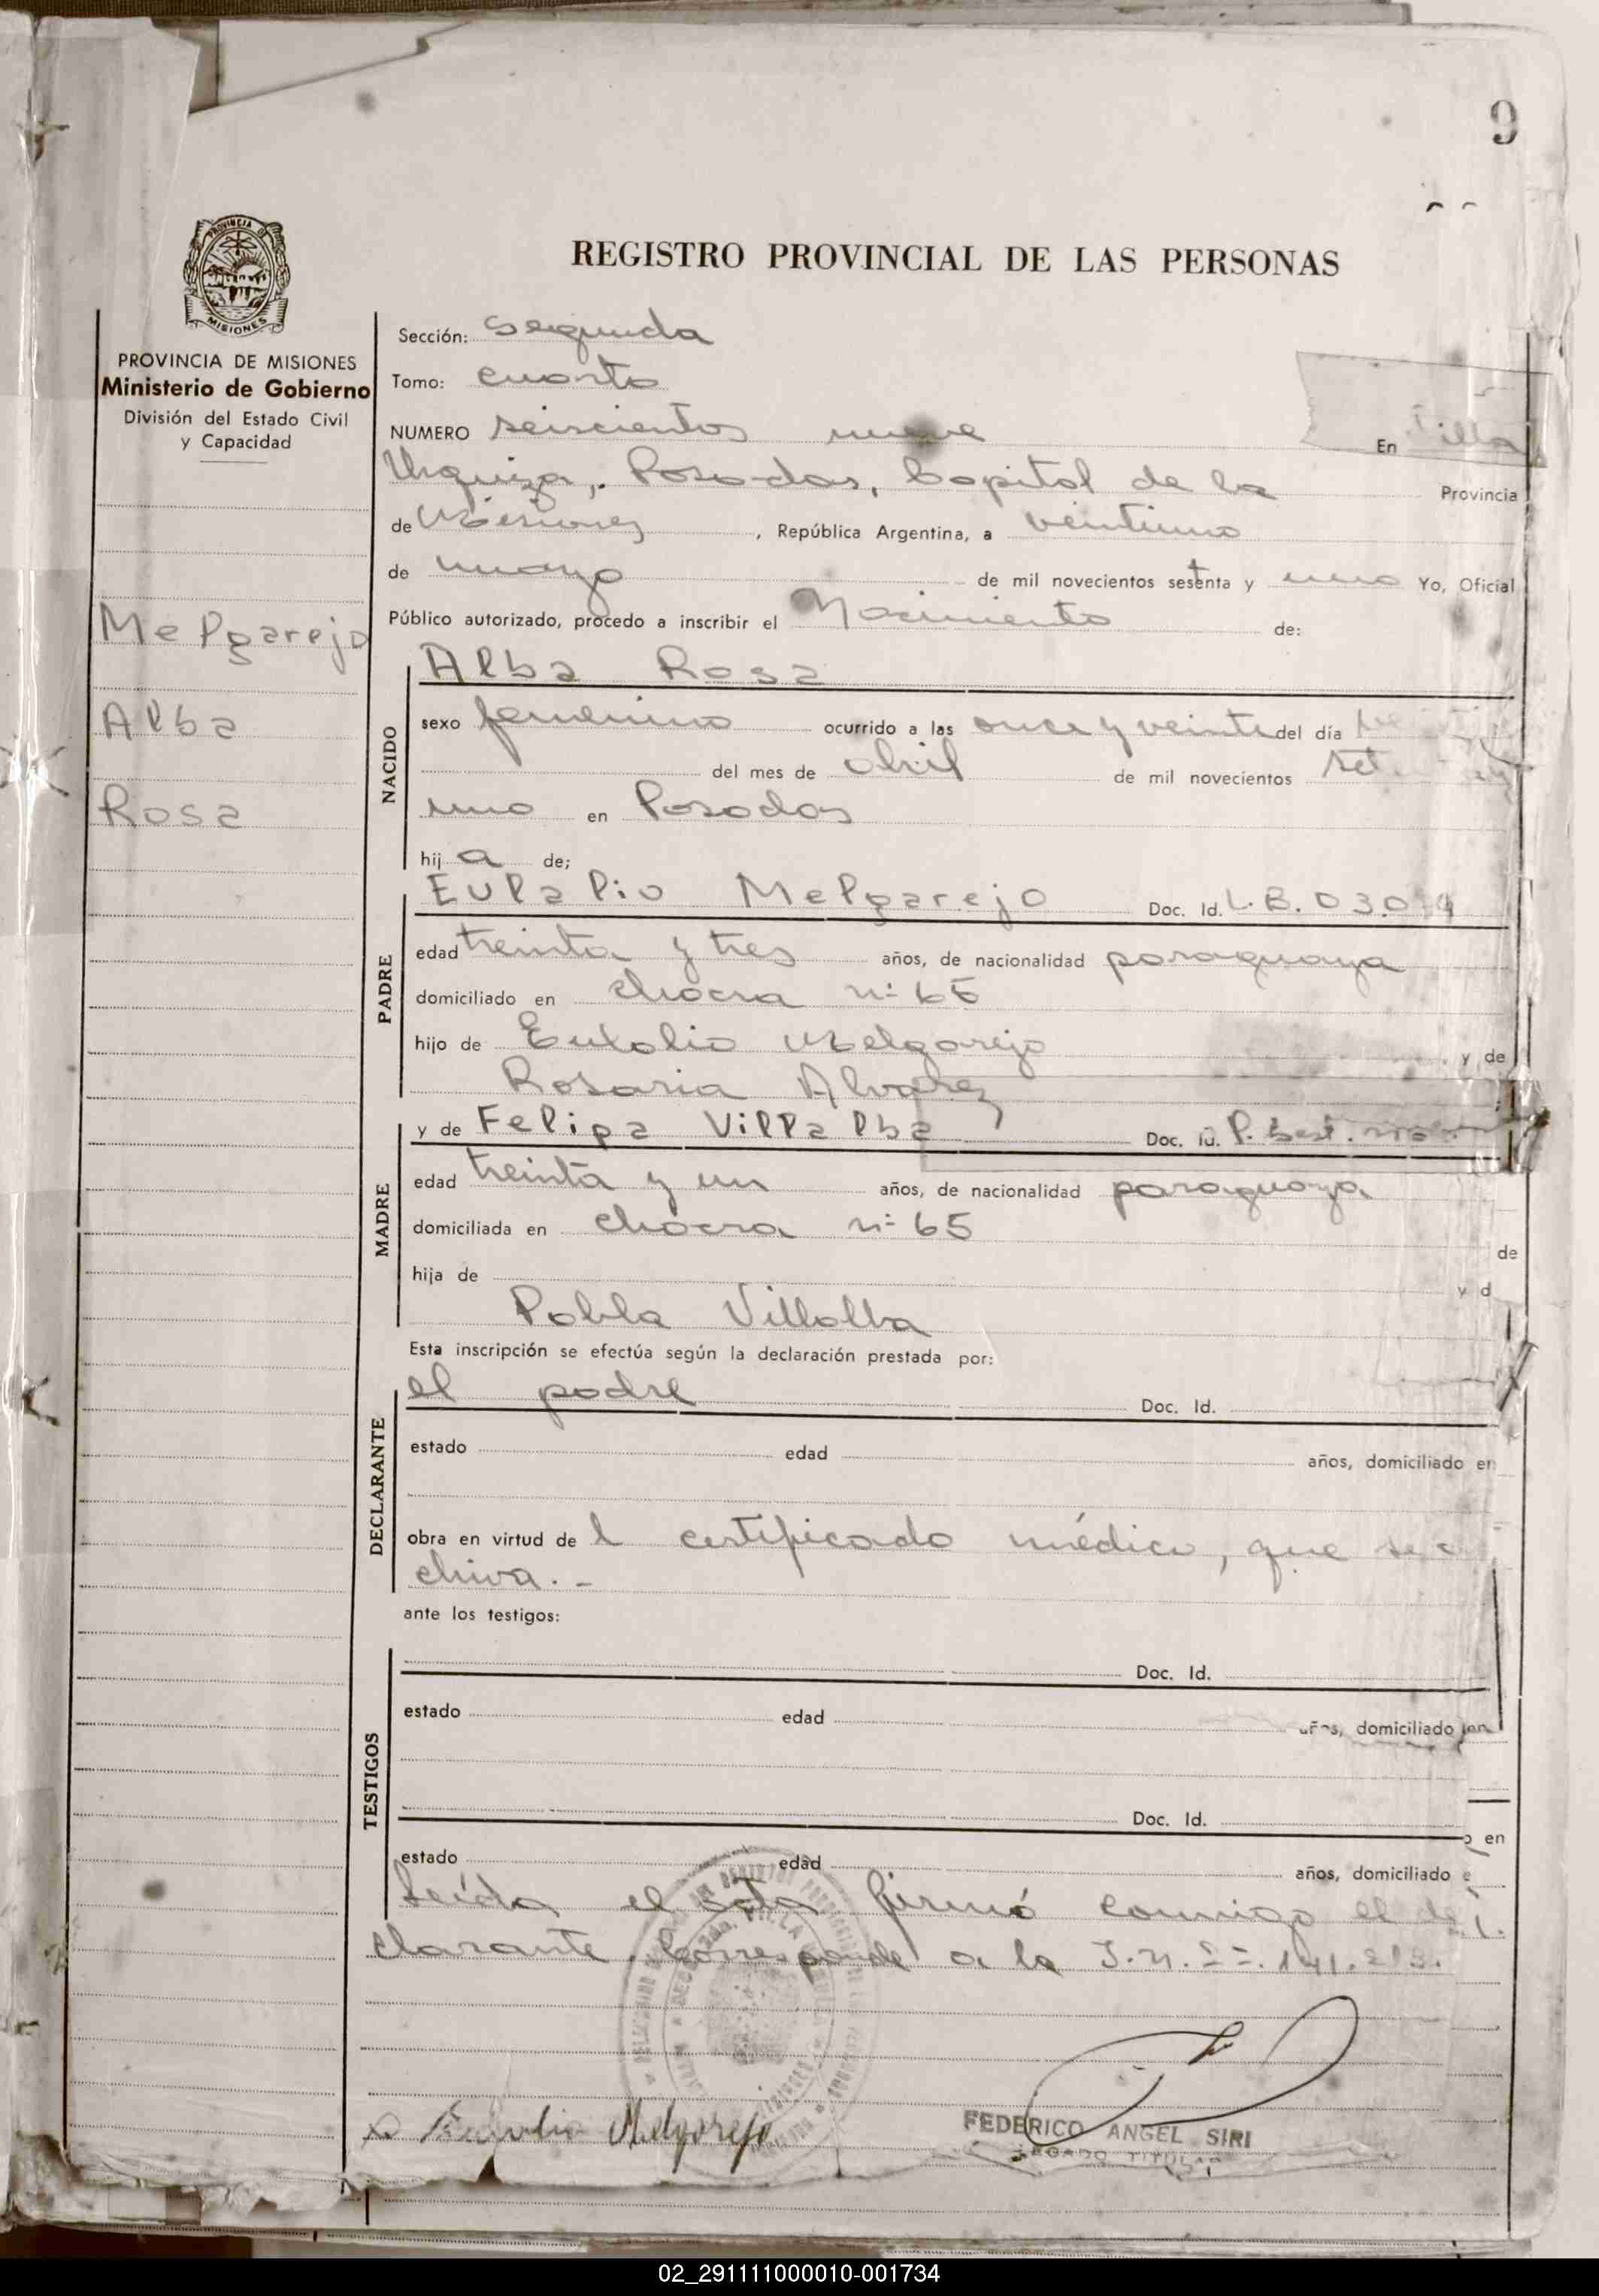 9
REGISTRO PROVINCIAL DE LAS PERSONAS
PROVINCIA DE MISIONES
Ministerio de Gobierno
División del Estado Civil
y Capacidad
Melgarejo
Alba
Rosa
Sección: segunda
Tomo: cuarto
NUMERO seiscientos nueve En Villa
Urquiza, Posadas, Capital de la Provincia
de Misiones, República Argentina, a veintiuno
de mayo de mil novecientos setenta y uno Yo, Oficial
Público autorizado, procedo a inscribir el Nacimiento de:
NACIDO
Alba Rosa
sexo femenino ocurrido a las once y veinte del día
del mes de abril de mil novecientos
uno en Posadas
hij a de;
PADRE
Eulalio Melgarejo Doc. Id. L.B.
edad treinta y tres años, de nacionalidad paraguaya
domiciliado en chacra nº 65
hijo de Eulalio Melgarejo y de
Rosaria Alvarez
MADRE
y de Felipa Villalba Doc. Id.
edad treinta y un años, de nacionalidad paraguaya
domiciliada en chacra nº 65
de
hija de y d
Pabla Villalba
Esta inscripción se efectúa según la declaración prestada por:
DECLARANTE
el padre Doc. Id.
estado edad años, domiciliado en
obra en virtud de l certificado médico, que se
chiva.-
ante los testigos:
TESTIGOS
Doc. Id.
estado edad años, domiciliado en
Doc. Id.
en
estado edad años, domiciliado e
Leída el acta firmó conmigo el de
clarante. Corresponde a la
Eulalio Melgarejo
FEDERICO ANGEL SIRI
02_291111000010-001734